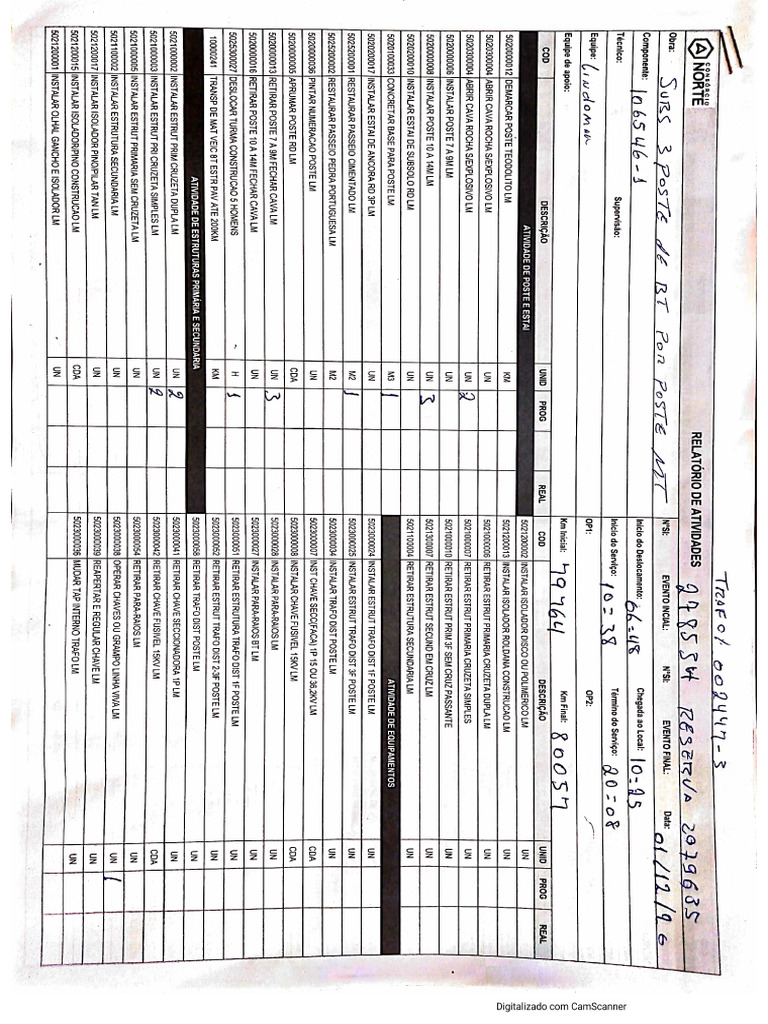 CONSÓRCIO
NORTE
RELATÓRIO DE ATIVIDADES
TRAFO 002447-3
278534 RESERVA 2079635
Obra: SUBS 3 POSTE DE BT POR POSTE MT
NºSI: EVENTO INCIAL: NºSI: EVENTO FINAL: Data: 01/12/20
Componente: 106546-1
Inicio do Deslocamento: 06=48 Chegada ao Local: 10=25
Técnico: Supervisão:
Inicio do Serviço: 10=38 Término do Serviço: 20=08
Equipe: Lindomar
OP1: OP2:
Equipe de apoio:
Km Inicial: 79964 Km Final: 80057
COD DESCRIÇÃO UNID PROG REAL
ATIVIDADE DE POSTE E ESTAI
5020000012 DEMARCAR POSTE TEODOLITO LM KM
5020300004 ABRIR CAVA ROCHA S/EXPLOSIVO LM UN
5020300004 ABRIR CAVA ROCHA S/EXPLOSIVO LM UN 2
5020000006 INSTALAR POSTE 7 A 9M LM UN
5020000008 INSTALAR POSTE 10 A 14M LM UN 3
5020200010 INSTALAR ESTAI DE SUBSOLO RD LM UN
5020100033 CONCRETAR BASE PARA POSTE LM M3 1
5020200017 INSTALAR ESTAI DE ANCORA RD 3P LM UN
5025200001 RESTAURAR PASSEIO CIMENTADO LM M2 1
5025200002 RESTAURAR PASSEIO PEDRA PORTUGUESA LM M2
5020000036 PINTAR NUMERACAO POSTE LM UN
5020000005 APRUMAR POSTE RD LM CDA
5020000013 RETIRAR POSTE 7 A 9M FECHAR CAVA LM UN 3
5020000016 RETIRAR POSTE 10 A 14M FECHAR CAVA LM UN
5025300027 DESLOCAR TURMA CONSTRUCAO 5 HOMENS H 1
10000241 TRANSP DE MAT VEIC 8T ESTR PAV ATE 200KM KM
ATIVIDADE DE ESTRUTURAS PRIMÁRIA E SECUNDARIA
5021000002 INSTALAR ESTRUT PRIM CRUZETA DUPLA LM UN 2
5021000003 INSTALAR ESTRUT PRI CRUZETA SIMPLES LM UN 2
5021000005 INSTALAR ESTRUT PRIMARIA SEM CRUZETA LM UN
5021100002 INSTALAR ESTRUTURA SECUNDARIA LM UN
5021200017 INSTALAR ISOLADOR PINO/PILAR TAN LM UN
5021200015 INSTALAR ISOLADOR/PINO CONSTRUCAO LM CDA
5021200001 INSTALAR OLHAL GANCHO E ISOLADOR LM UN
COD DESCRIÇÃO UNID PROG REAL
5021200002 INSTALAR ISOLADOR DISCO OU POLIMERICO LM UN
5021200013 INSTALAR ISOLADOR ROLDANA CONSTRUCAO LM UN
5021000008 RETIRAR ESTRUT PRIMARIA CRUZETA DUPLA LM UN
5021000007 RETIRAR ESTRUT PRIMARIA CRUZETA SIMPLES UN
5021000010 RETIRAR ESTRUT PRIM 3F SEM CRUZ PASSANTE UN
5021300007 RETIRAR ESTRUT SECUND EM CRUZ LM UN
5021100004 RETIRAR ESTRUTURA SECUNDARIA LM UN
ATIVIDADE DE EQUIPAMENTOS
5023000024 INSTALAR ESTRUT TRAFO DIST 1F POSTE LM UN
5023000025 INSTALAR ESTRUT TRAFO DIST 3F POSTE LM UN
5023000034 INSTALAR TRAFO DIST POSTE LM UN
5023000007 INST CHAVE SECC(FACA) 1P 15 OU 36,2KV LM CDA
5023000008 INSTALAR CHAVE FUSIVEL 15KV LM CDA
5023000028 INSTALAR PARA-RAIOS LM UN
5023000027 INSTALAR PARA-RAIOS BT LM UN
5023000051 RETIRAR ESTRUTURA TRAFO DIST 1F POSTE LM UN
5023000052 RETIRAR ESTRUT TRAFO DIST 2-3F POSTE LM UN
5023000058 RETIRAR TRAFO DIST POSTE LM UN
5023000041 RETIRAR CHAVE SECCIONADORA 1P LM UN
5023000042 RETIRAR CHAVE FUSIVEL 15KV LM CDA
5023000054 RETIRAR PARA-RAIOS LM UN
5023000038 OPERAR CHAVES OU GRAMPO LINHA VIVA LM UN 1
5023000039 REAPERTAR E REGULAR CHAVE LM UN
5023000036 MUDAR TAP INTERNO TRAFO LM UN
Digitalizado com CamScanner